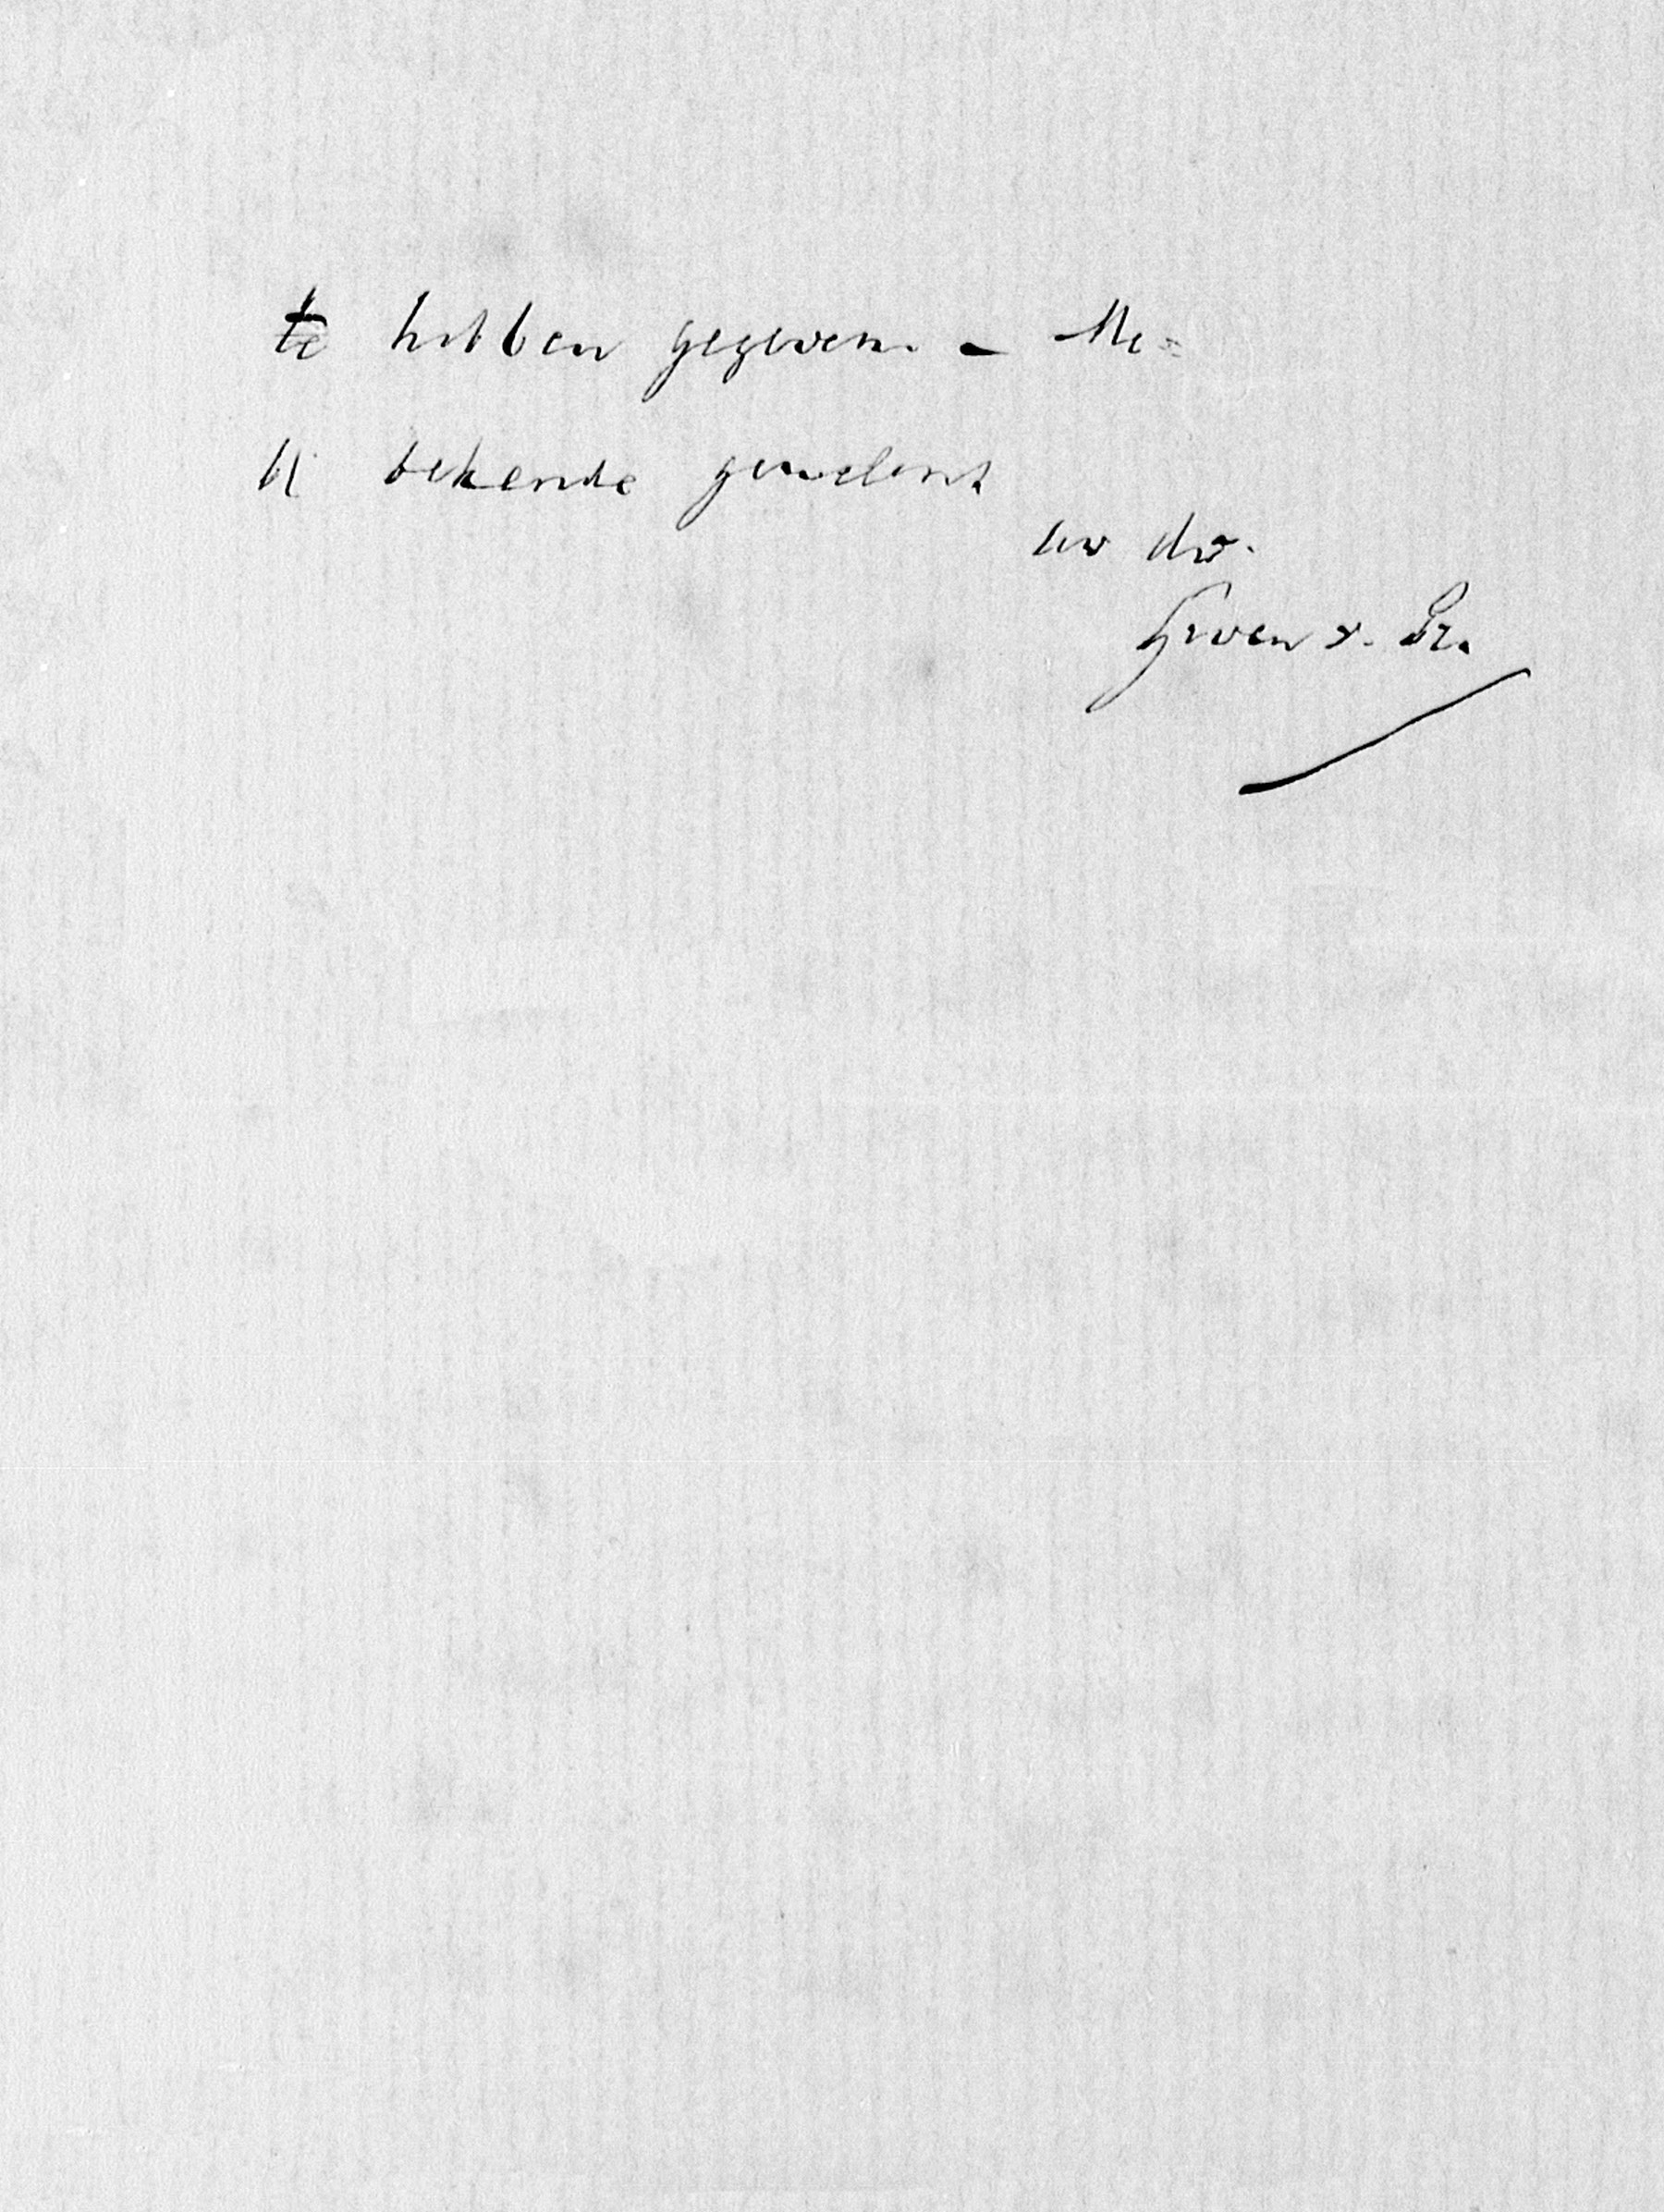 te hebben gegeven. — Me=
U bekende gewelens
uw dw.
Groen v. Pr.